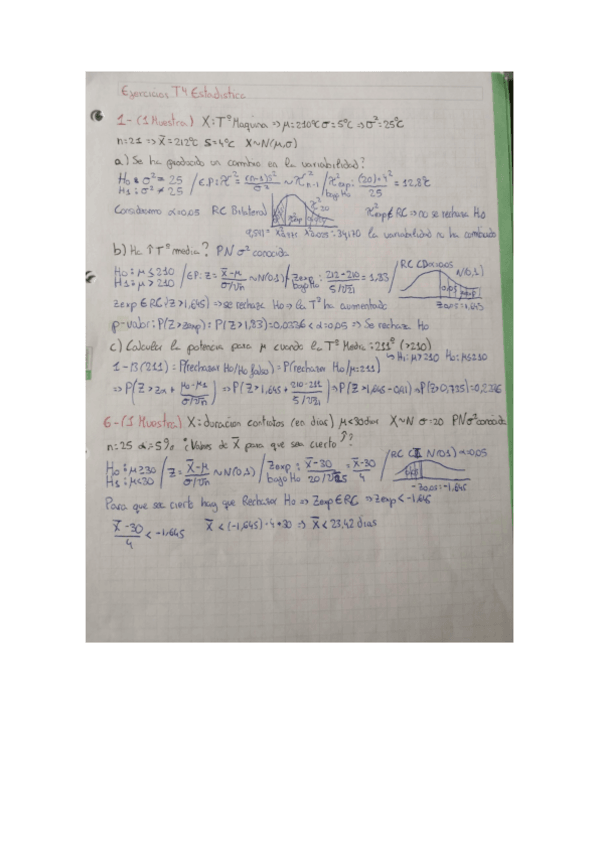 Ejercicios T4 Estadística
1- (1 Muestra) X = Tª Maquina => μ=210ºC σ=5ºC => σ²=25ºC
n=21 => x̄=212ºC S=4ºC X~N(μ,σ)
a) Se ha producido un cambio en la variabilidad?
H0: σ²=25 / E.P: χ² = (n-1)S²/σ² ~ χ²n-1 / χ²exp bajo H0 : (20)·4²/25 = 12,8ºC
H1: σ²≠25
Consideramos α=0,05 RC Bilateral χ²20 χ²exp∉RC => no se rechaza H0
9,591=χ²0,975 χ²0,025=34,170 la variabilidad no ha cambiado
b) Ha ↑ Tª media? PN σ² conocida
H0: μ≤210 / EP: Z = x̄-μ / σ/√n ~ N(0,1) / Zexp bajo H0 : 212-210 / 5/√21 = 1,83 / RC (D α=0,05 N(0,1)
H1: μ>210 Z0,05=1,645
Zexp ∈ RC (Z>1,645) => se rechaza H0 => la Tª ha aumentado
p-valor: P(Z>Zexp) = P(Z>1,83)=0,0336 < α=0,05 => Se rechaza H0
c) Calcular la potencia para μ cuando la Tª Media = 211º (>210)
↳ H1: μ>210 H0: μ≤210
1-β(211) = P(rechazar H0/H0 falso) = P(rechazar H0/μ=211)
=> P(Z > Zα + μ0-μ1 / σ/√n) => P(Z>1,645 + 210-211 / 5/√21) => P(Z>1,645-0,91) => P(Z>0,735)=0,2346
6- (1 Muestra) X = duracion contratos (en dias) μ<30dias X~N σ=20 PN σ² conocida
n=25 α=5% ¿Valores de X̄ para que sea cierto?
H0: μ≥30 / Z = X̄-μ / σ/√n ~ N(0,1) / Zexp bajo H0 : X̄-30 / 20/√25 = X̄-30 / 4 / RC (I N(0,1) α=0,05
H1: μ<30 -Z0,05=-1,645
Para que sea cierto hay que Rechazar H0 => Zexp∈RC => Zexp < -1,645
X̄-30 / 4 < -1,645 X̄ < (-1,645)·4+30 => X̄ < 23,42 dias